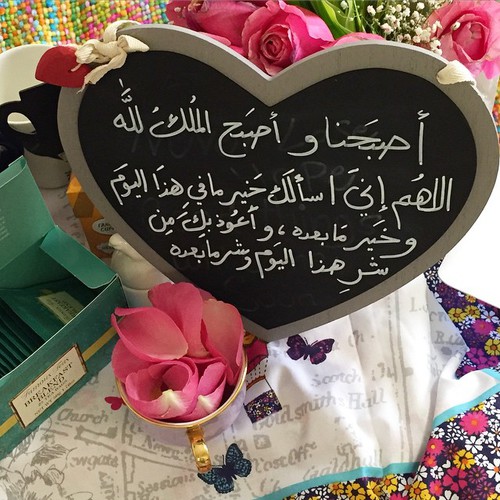 أصبحنا و أصبح الملك لله
اللهم إني اسألك خير ما في هذا اليوم
وخير ما بعده ، و أعوذ بك من
شر هذا اليوم وشر ما بعده
BREAKFAST
BLEND
Church
Scotch
Goldsmiths Hall
Post Office